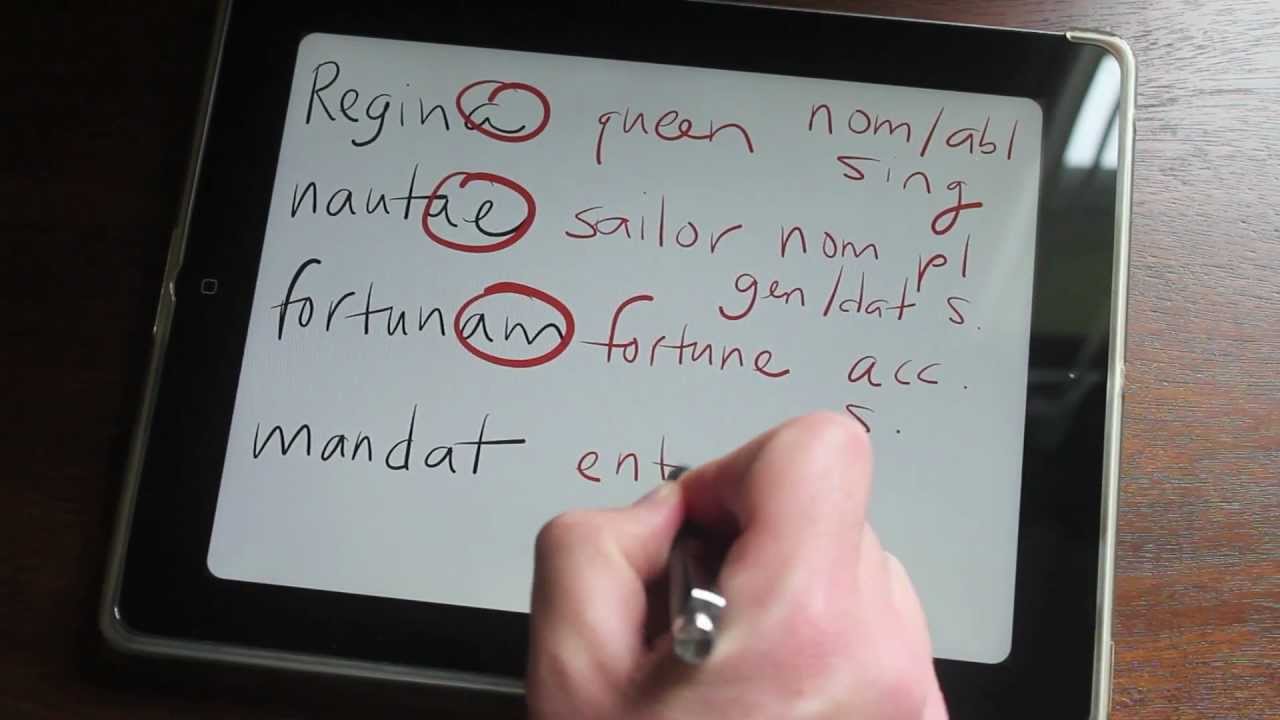 Regina queen nom/abl
sing
nautae sailor nom pl
gen/dat s.
fortunam fortune acc.
s.
mandat ent